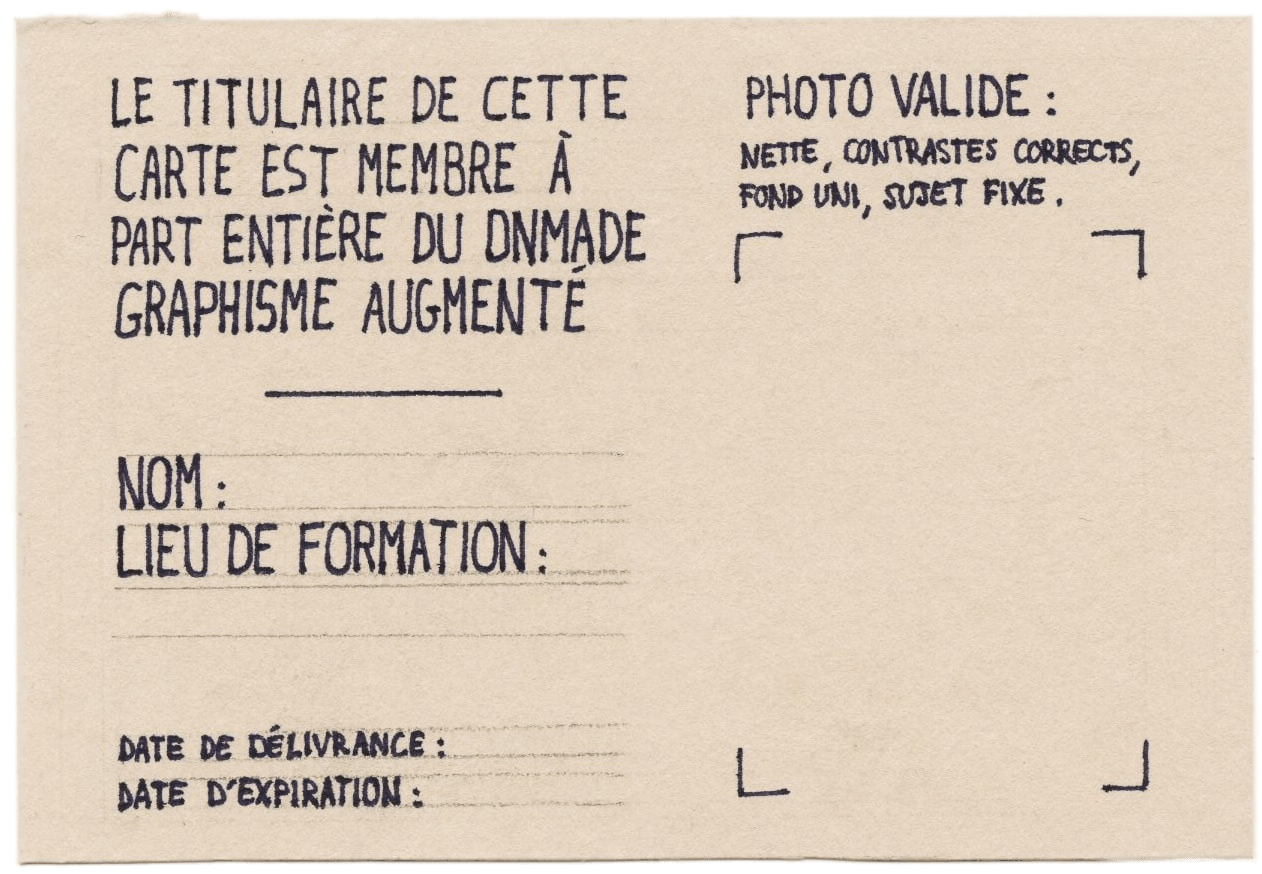 LE TITULAIRE DE CETTE
CARTE EST MEMBRE À
PART ENTIÈRE DU DNMADE
GRAPHISME AUGMENTÉ
NOM :
LIEU DE FORMATION :
DATE DE DÉLIVRANCE :
DATE D'EXPIRATION :
PHOTO VALIDE :
NETTE, CONTRASTES CORRECTS,
FOND UNI, SUJET FIXE.